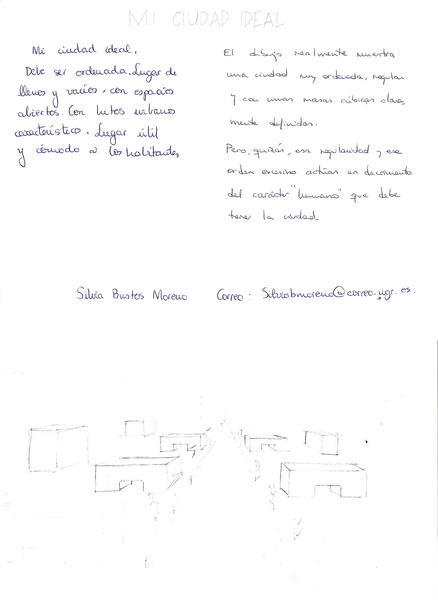 MI CIUDAD IDEAL
Mi ciudad ideal.
Debe ser ordenada. Lugar de
llenos y vacíos, con espacios
abiertos. Con hitos urbanos
característico. Lugar útil
y cómodo a los habitantes,
El dibujo realmente muestra
una ciudad muy ordenada, regular
y con unas masas cúbicas clara
mente definidas.
Pero, quizás, esa regularidad y ese
orden excesivo actúan en decremento
del carácter "humano" que debe
tener la ciudad.
Silvia Bustos Moreno
Correo: Silviabmoreno@correo.ugr.es.